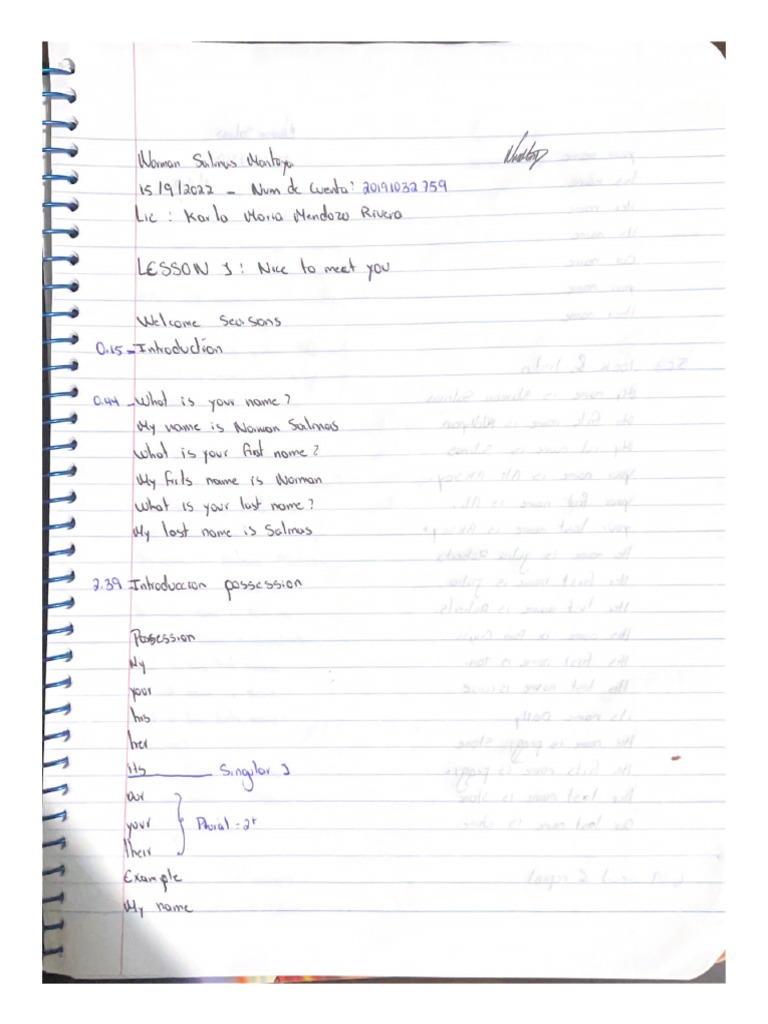 Norman Salinas Montoya
15/9/2022 - Num de Cuenta: 20191032759
Lic : Karla Maria Mendoza Rivera
LESSON 1 : Nice to meet you
Welcome Seasons
0.15 - Introduction
0.44 - What is your name?
My name is Norman Salinas
What is your first name?
My firts name is Norman
What is your last name?
My last name is Salinas
2.39 Introduccion possession
Possession
My
your
his
her
its Singular 1
our
your Plurial = 2+
their
Example
My name